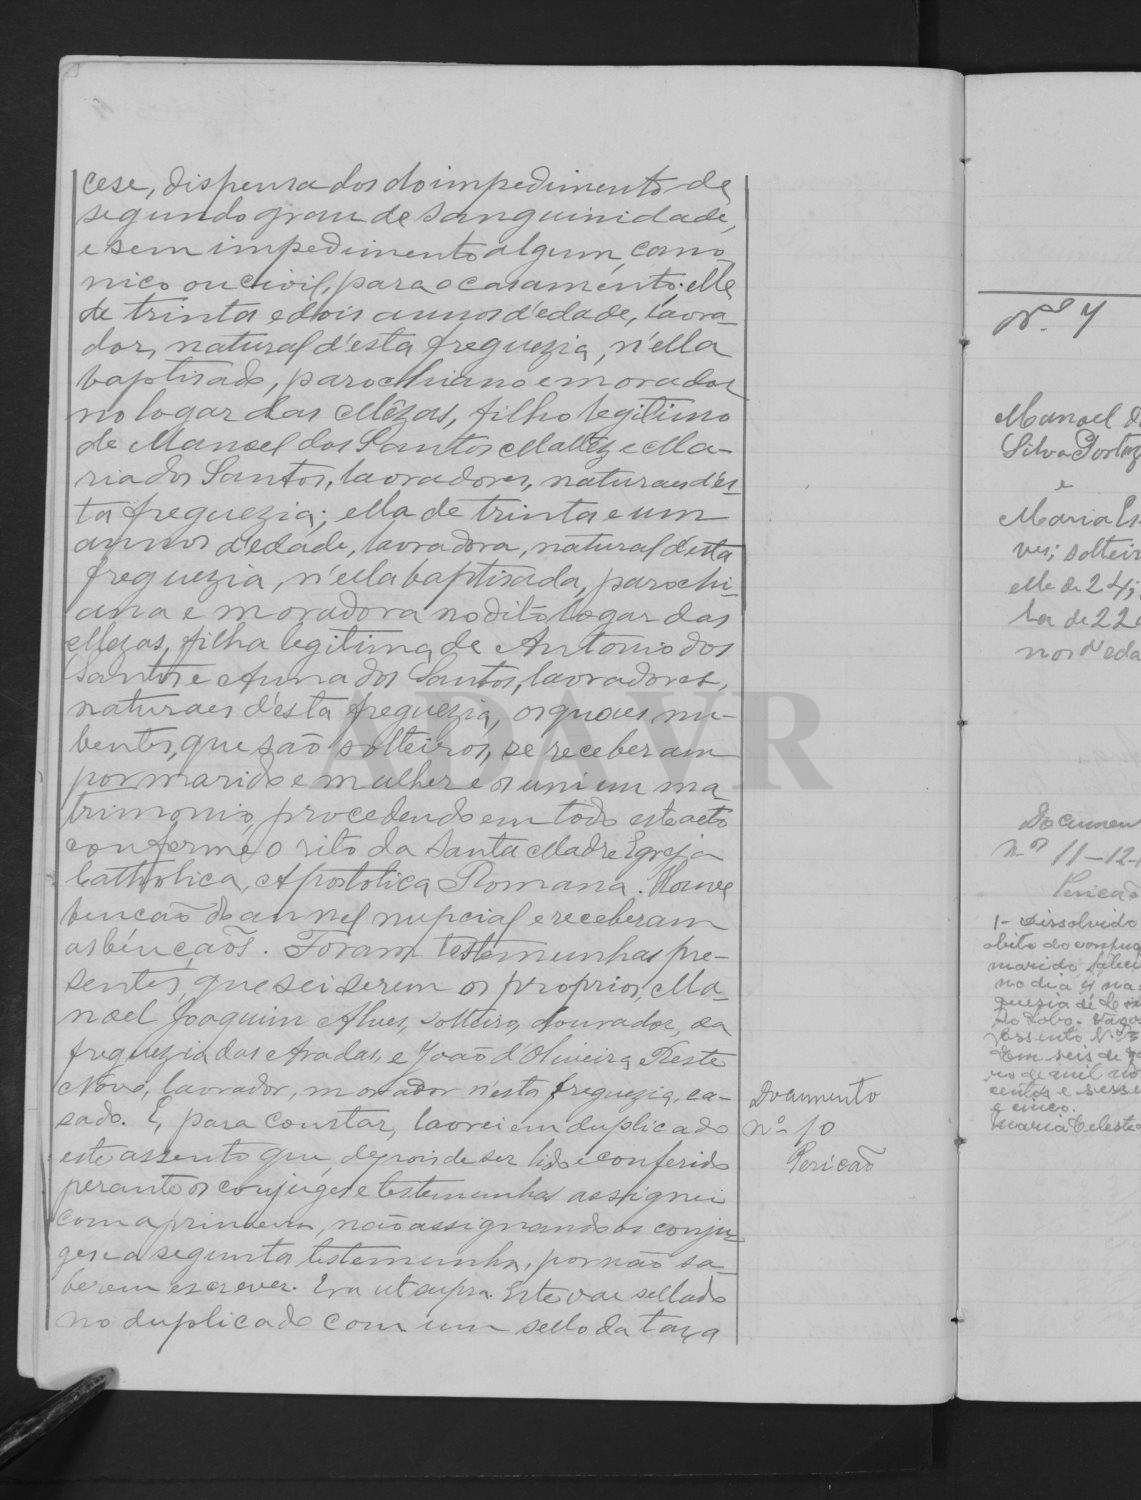 cese, dispensados do impedimento de
segundo grau de sanguinidade,
e sem impedimento algum, cano-
nico ou civil, para o casamento; elle
de trinta e dois annos d'edade, lavra-
dor, natural d'esta freguezia, n'ella
baptisado, parochiano e morador
no logar das Mêzas, filho legitimo
de Manoel dos Santos e Ma-
ria dos Santos, lavradores, naturaes d'es-
ta freguezia; ella de trinta e um
annos d'edade, lavradora, natural d'esta
freguezia, n'ella baptisada, parochi-
ana e moradora no dito logar das
Mezas, filha legitima de Antonio dos
Santos e Anna dos Santos, lavradores,
naturaes d'esta freguezia, os quaes nu-
bentes, que são solteiros, se receberam
por marido e mulher e os uni em ma-
trimonio, procedendo em todo este acto
conforme o rito da Santa Madre Egreja
Catholica, Apostolica Romana. Houve
bencão do annel nupcial e receberam
as bênçãos. Foram testemunhas pre-
sentes, que sei serem os proprios, Ma-
noel Joaquim Alves, solteiro, dourador, da
freguezia das Aradas, e João d'Oliveira Reste
Novo, lavrador, morador n'esta freguezia, ca-
sado. E, para constar, lavrei em duplicado
este assento que, depois de ser lido e conferido
perante os conjuges e testemunhas assignei
com a primeira, não assignando os conju-
ges e a segunda testemunha, por não sa-
berem escrever. Era ut supra. Este vae sellado
no duplicado com um sello da taxa
Documento
nº 10
Pericão
ADAVR
Nº 7
Manoel d
Silva
e
Maria Es
ves; solteir
elle de 24;
la de 22
nos d'eda
Documen
nos 11-12-
Pericão
1- Dissolvido
obito do conjug
marido, faleci
no dia
guezia de
do Lobo. Vagos
Assento Nº 3
Em seis de
ro de mil no
centos e sesse
e cinco.
Maria Celeste